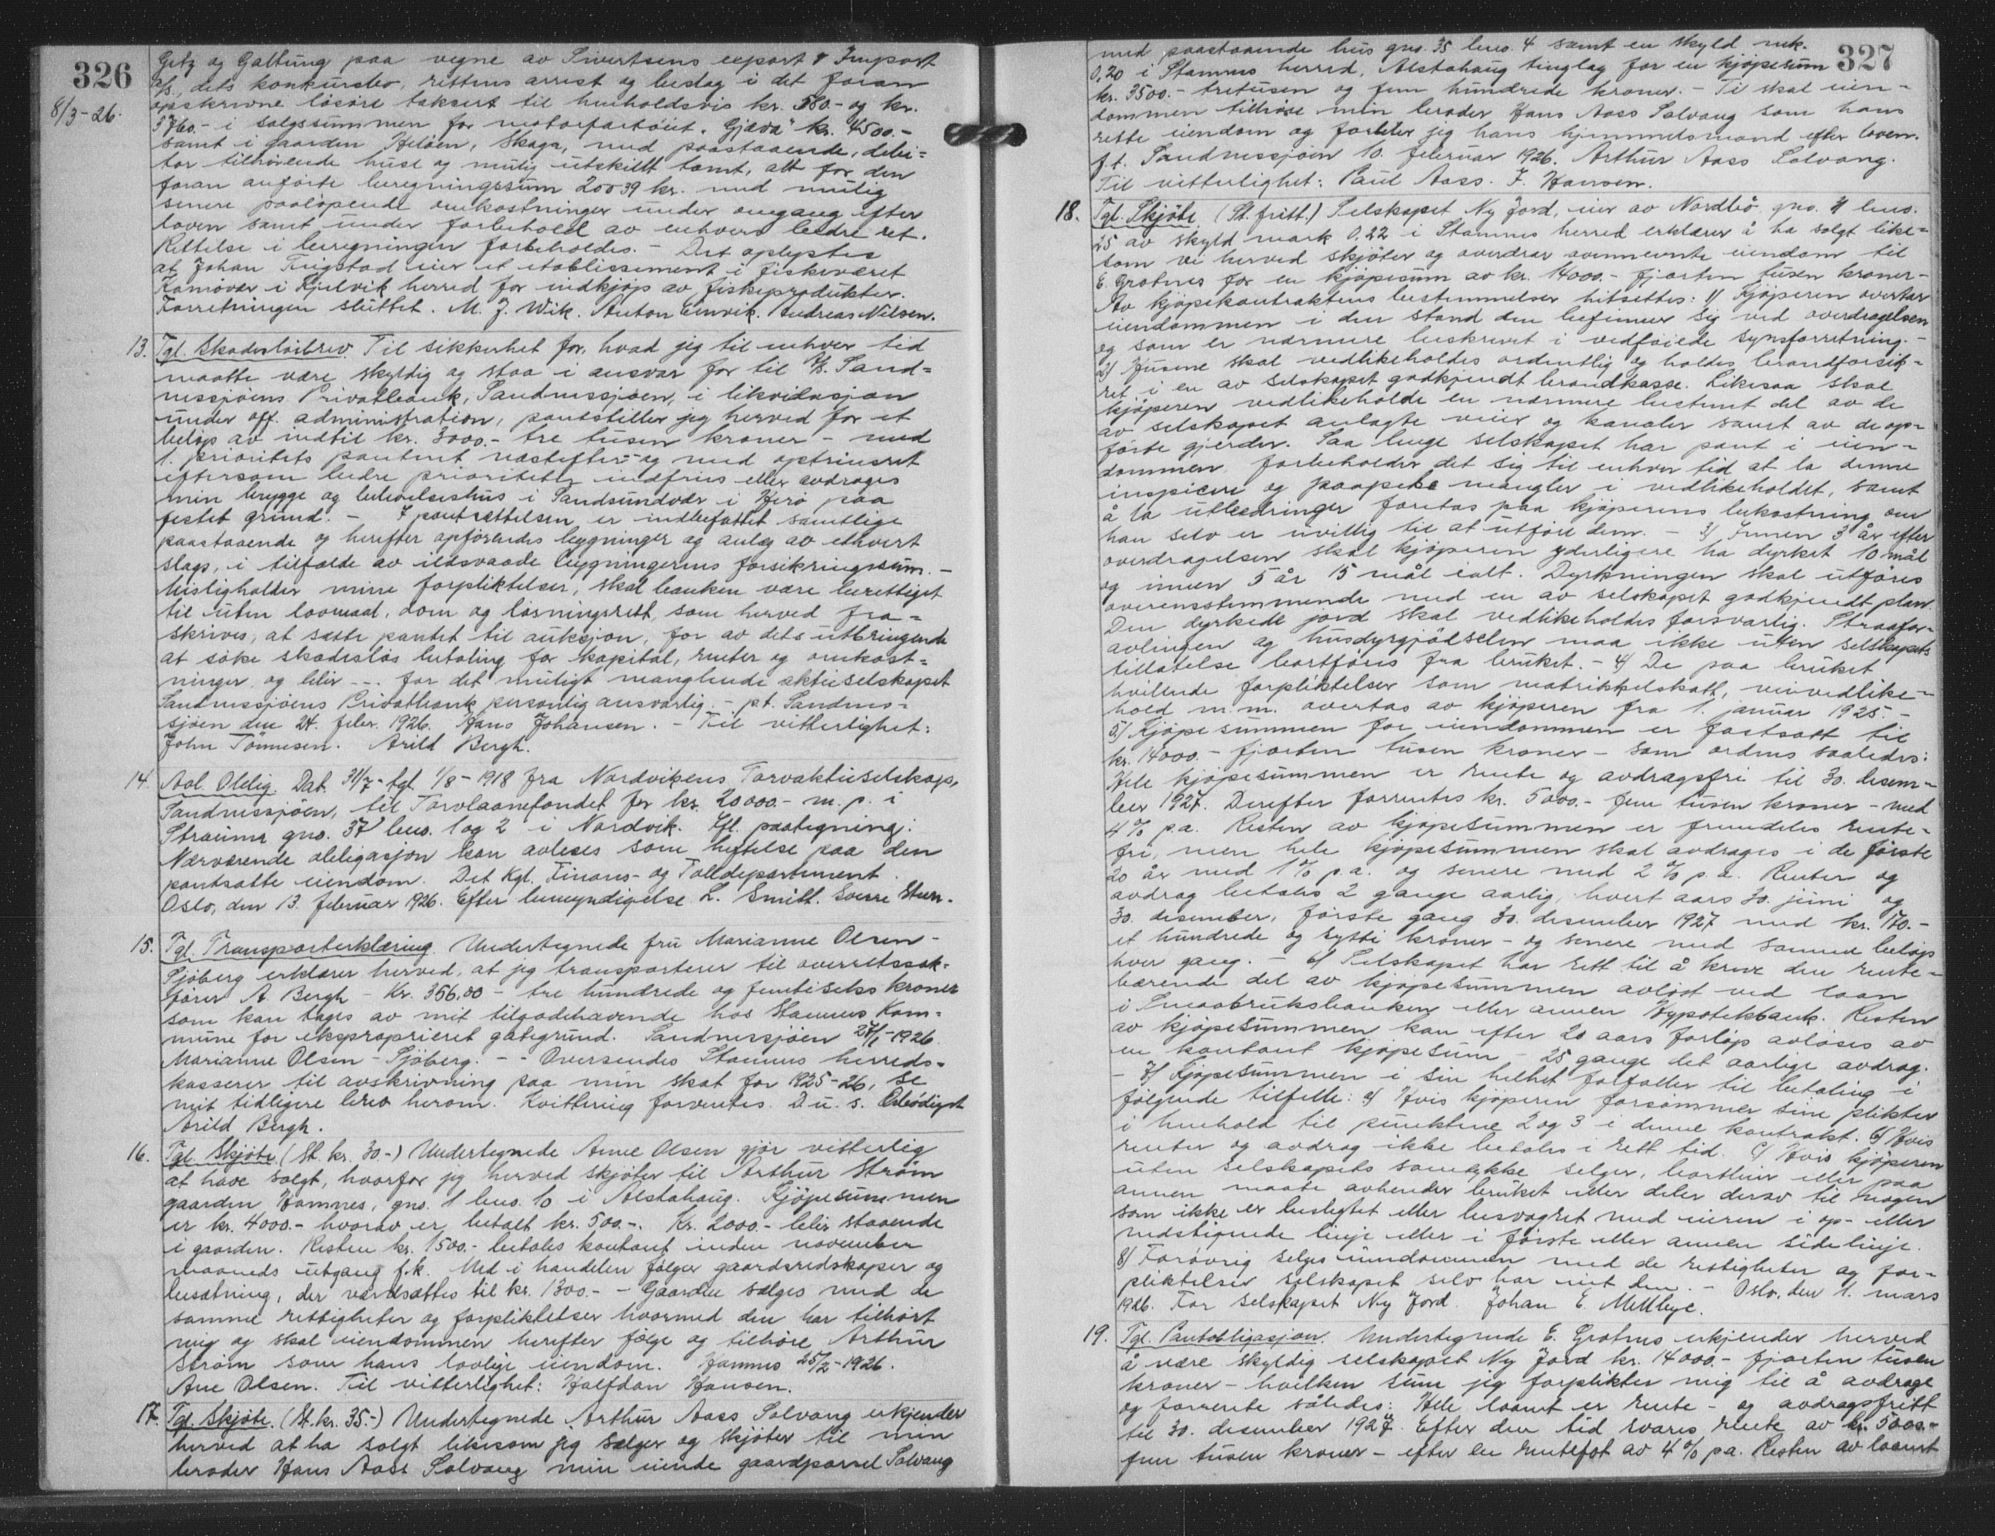 326
8/3-26.
Getz og Galtung paa vegne av Sivertsens export & Import
A/S, dets konkursbo, rettens arrest og beslag i det foran
opskrevne løsøre taksert til henholdsvis kr. 580.- og kr.
3760.- i salgssummen for motorfartöiet "Gjæva" kr. 4500.-
samt i gaarden Heløen, Skaga, med paastaaende, debi=
tor tilhörende huse og mulig utskilt tomt, alt for den
foran anförte beregningssum 20039 kr. med mulig
senere paalöpende omkostninger under omgang efter
loven samt under forbehold av enhvers bedre ret.
Rettelse i beregningen forbeholdes. - Det oplystes
at Johan Trigstad eier et etablissement i fiskeværet
Kamøvær i Kjelvik herred for indkjöp av fiskeprodukter.
Forretningen sluttet. M. J. Wik. Anton Einvik. Andreas Nilsen.
13. Tgl. Skadeslösbrev Til sikkerhet for, hvad jeg til enhver tid
maatte være skyldig og staa i ansvar for til A/S. Sand=
nessjöens Privatbank, Sandnessjöen, i likvidasjon
under off. administration, pantstiller jeg herved for et
belöp av indtil kr. 3000.- tre tusen kroner - med
1. prioritets panteret næstefter - og med optrinsret
eftersom bedre prioriteter indfries eller avdrages
min brygge og beboelseshus i Sandsundvær i Herö paa
festet grund. - I pantsettelsen er indbefattet samtlige
paastaaende og herefter opförendes bygninger og anlæg av ethvert
slags, i tilfælde av ildsvaade bygningernes forsikringssum. -
Misligholder mine forpliktelser, skal banken være berettiget
til uten lovmaal, dom og løsningsrett, som herved fra=
skrives, at sætte pantet til auksjon, for av dets utbringende
at söke skadeslös betaling for kapital, renter og omkost=
ninger og blir --- for det muligt manglende aktieselskapet
Sandnessjöens Privatbank personlig ansvarlig. - p.t. Sandnes=
sjöen den 24. febr. 1926. Hans Johansen. - Til vitterlighet:
John Tönnesen. Arild Bergh.
14. Avl. Oblig. Dat. 31/7- tgl. 1/8-1918 fra Nordvikens Torvaktieselskap,
Sandnessjöen, til Torvlaanefondet for kr. 20000.- m. p. i
Strauma gno. 37 bno. 1 og 2 i Nordvik. Hfl. paategning:
Nærværende obligasjon kan avleses som heftelse paa den
pantsatte eiendom. Det Kgl. Finans- og Tolldepartement.
Oslo, den 13. februar 1926. Efter bemyndigelse L. Smitt. Sverre Steen.
15. Tgl. Transporterklæring. Undertegnede fru Marianne Olsen-
Sjöberg erklærer herved, at jeg transporterer til overretssak-
förer A. Bergh - Kr. 356.00 - tre hundrede og femtiseks kroner
som kan tages av mit tilgodehavende hos Stamnes Kom-
mune for ekspropriert gategrund. Sandnessjöen 27/1-1926.
Marianne Olsen - Sjöberg. - - Oversendes Stamnes herreds-
kasserer til avskrivning paa min skat for 1925-26, se
mit tidligere brev herom. Kvittering forventes. D. u. s. Erbödigst
Arild Bergh.
16. Tgl. Skjöte (St. kr. 30-) Undertegnede Anne Olsen gjör vitterlig
at have solgt, hvorfor jeg herved skjöter til Arthur Ström
gaarden Hamnes, gno. 1 bno. 10 i Alstahaug. Kjöpesummen
er kr. 4000.- hvorav er betalt kr. 500.-. Kr. 2000.- blir staaende
i gaarden. Resten kr. 1500.- betales kontant inden november
maaneds utgang f.k. Med i handelen fölger gaardsredskaper og
besætning, der værdsættes til kr. 1300.- - Gaarden sælges med de
samme rettigheter og forpliktelser hvormed den har tilhört
mig og skal eiendommen herefter fölge og tilhöre Arthur
Ström som hans lovlige eiendom. Hamnes 25/2-1926.
Ane Olsen. Til vitterlighet: Halfdan Hansen.
17. Tgl. Skjöte. (St. kr. 35.-) Undertegnede Arthur Aass Solvang erkjender
herved at ha solgt likesom jeg sælger og skjöter til min
broder Hans Aass Solvang min eiende gaardparsel Solvang
327
med paastaaende hus gno. 35 bno. 4 samt en skyld mrk.
0,20 i Stamnes herred, Alstahaug tinglag for en kjöpesum
kr. 3500.- tretusen og fem hundrede kroner. - Ti skal eien-
dommen tilhöre min broder Hans Aass Solvang som hans
rette eiendom og forblir jeg hans hjemmelsmand efter loven.
p.t. Sandnessjöen 10. februar 1926. Arthur Aass Solvang.
Til vitterlighet: Paul Aass. J. Hansen.
18. Tgl. Skjöte (St. fritt.) Selskapet Ny Jord, eier av Nordbö gno. 4 bno.
25 av skyld mark 0,22 i Stamnes herred erklærer å ha solgt like=
som vi herved skjöter og overdrar ovennevnte eiendom til
E. Grotnes for en kjöpesum av kr. 14000.- fjorten tusen kroner-
Av kjöpekontraktens bestemmelser hitsettes: 1) Kjöperen overtar
eiendommen i den stand den befinner sig ved overdragelsen
og som er nærmere beskrevet i vedföiede synsforretning. -
2) Husene skal vedlikeholdes ordentlig og holdes brandforsik-
ret i en av selskapet godkjendt brandkasse. Likesaa skal
kjöperen vedlikeholde en nærmere bestemt del av de
av selskapet anlagte veier og kanaler samt av de op-
förte gjerder. Saa lenge selskapet har pant i eien-
dommen forbeholder det sig til enhver tid at la denne
inspicere og paapeke mangler i vedlikeholdet, samt
å la utbedringer foretas paa kjöperens bekostning om
han selv er uvillig til at utföre dem. - 3) Innen 3 år efter
overdragelsen skal kjöperen yderligere ha dyrket 10 mål
og innen 5 år 15 mål ialt. Dyrkningen skal utföres
overensstemmende med en av selskapet godkjendt plan.
Den dyrkede jord skal vedlikeholdes forsvarlig. Straafor-
avlingen og husdyrgjödselen maa ikke uten selskapets
tillatelse bortföres fra bruket. - 4) De paa bruket
hvilende forpliktelser som matrikkelskatt, veivedlike-
hold m.m. overtas av kjöperen fra 1. januar 1925. -
5) Kjöpesummen for eiendommen er fastsatt til
kr. 14000.- fjorten tusen kroner - som ordnes saaledes:
Hele kjöpesummen er rente og avdragsfri til 30. desem-
ber 1927. Derefter forrentes kr. 5000.- fem tusen kroner - med
4% p.a. Resten av kjöpesummen er fremdeles rente-
fri, men hele kjöpesummen skal avdrages i de förste
20 år med 1% p.a. og senere med 2% p.a. Renter og
avdrag betales 2 gange aarlig, hvert aars 30. juni og
30. desember, förste gang 30. desember 1927 med kr. 170.-
et hundrede og sytti kroner - og senere med samme belöp
hver gang. - 6) Selskapet har rett til å kreve den rente-
bærende del av kjöpesummen avlöst ved laan
i Smaabruksbanken eller annen Hypotekbank. Resten
av kjöpesummen kan efter 20 aars forlöp avlöses av
en kontant kjöpesum - 25 gange det aarlige avdrag.
- 7) Kjöpesummen i sin helhet forfaller til betaling i
fölgende tilfelle: a) Hvis kjöperen forsömmer sine plikter
i henhold til punktene 2 og 3 i denne kontrakt. b) Hvis
renter og avdrag ikke betales i rett tid. c) Hvis kjöperen
uten selskapets samtykke selger, bortleier eller paa
annen maate avhender bruket eller deler derav til nogen
som ikke er beslegtet eller besvogret med eieren i op- eller
nedstigende linje eller i förste eller annen sidelinje.
8) Forövrig selges eiendommen med de rettigheter og for-
pliktelser selskapet selv har eiet den. - Oslo, den 1. mars
1926. For selskapet Ny Jord. Johan E. Mellbye.
19. Tgl. Pantobligasjon. Undertegnede E. Grotnes erkjender herved
å være skyldig selskapet Ny Jord kr. 14000.- fjorten tusen
kroner - hvilken sum jeg forplikter mig til å avdrage
og forrente således: Hele laanet er rente - og avdragsfritt
til 30. desember 1927. Efter den tid svares rente av kr. 5000.-
fem tusen kroner - efter en rentefot av 4% p.a. Resten av laanet